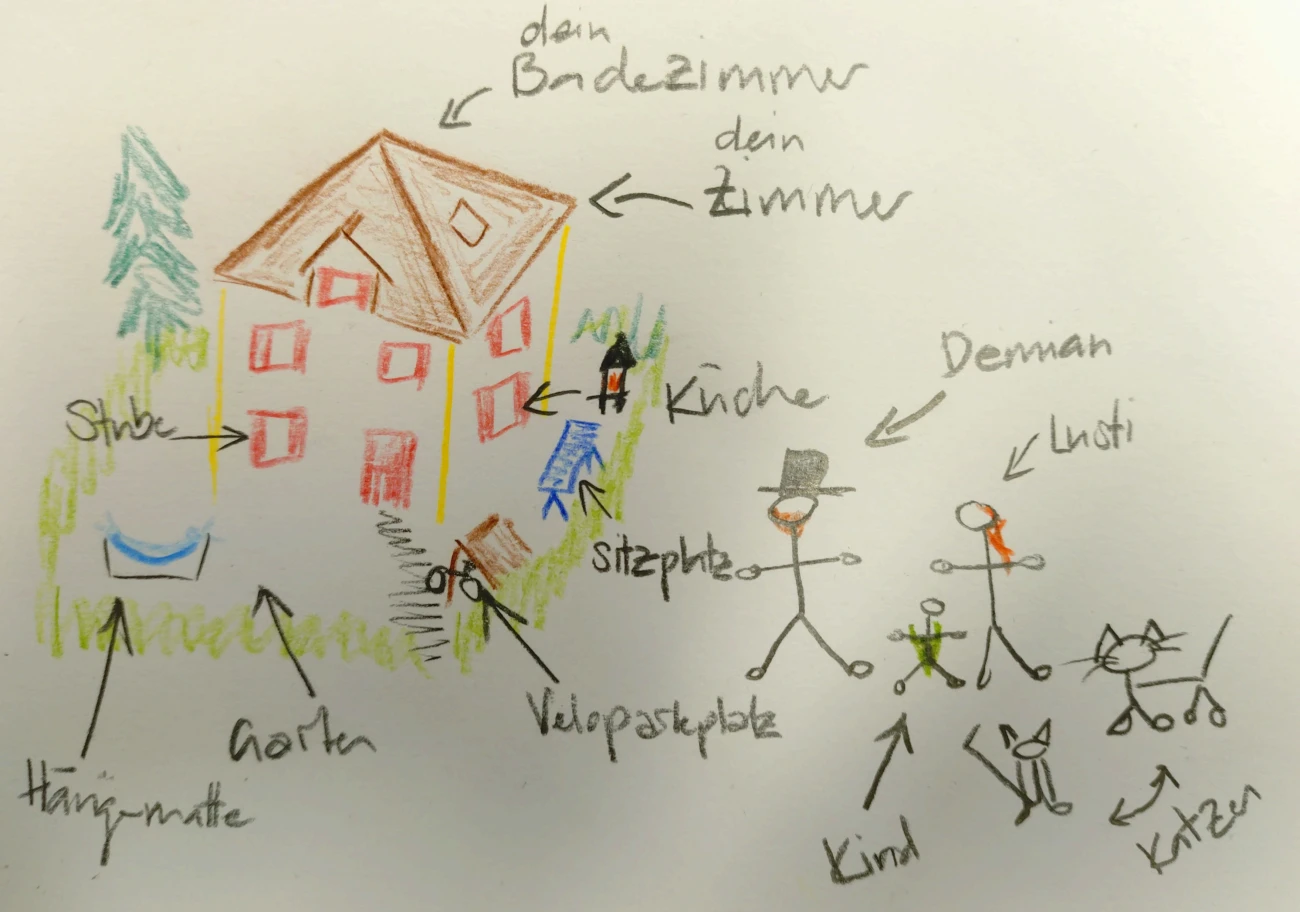 dein
Badezimmer
dein
Zimmer
Demian
Lusti
Küche
Stube
Sitzplatz
Garten
Veloparkplatz
Hängematte
Kind
Katzen